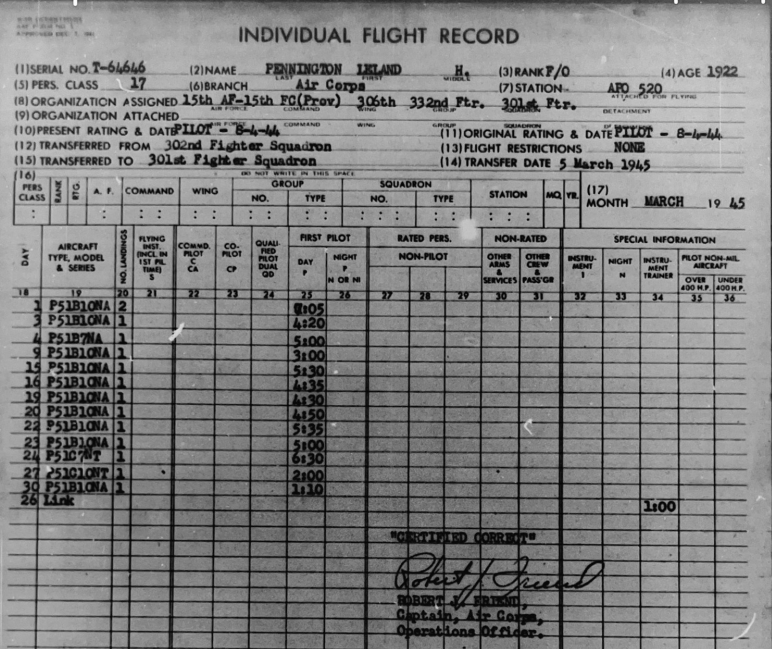 WAR DEPARTMENT
AAF FORM NO. 5
APPROVED DEC. 7, 1941
INDIVIDUAL FLIGHT RECORD
(1)SERIAL NO. T-64646 (2)NAME PENNINGTON LELAND H. (3)RANK F/O (4)AGE 1922
LAST FIRST MIDDLE
(5)PERS. CLASS 17 (6)BRANCH Air Corps (7)STATION APO 520
(8)ORGANIZATION ASSIGNED 15th AF-15th FC(Prov) 306th 332nd Ftr. 301st Ftr.
AIR FORCE COMMAND WING GROUP SQUADRON DETACHMENT
ATTACHED FOR FLYING
(9)ORGANIZATION ATTACHED
AIR FORCE COMMAND WING GROUP SQUADRON
(10)PRESENT RATING & DATE PILOT - 8-4-44 (11)ORIGINAL RATING & DATE PILOT - 8-4-44
(12)TRANSFERRED FROM 302nd Fighter Squadron (13)FLIGHT RESTRICTIONS NONE
(15)TRANSFERRED TO 301st Fighter Squadron (14)TRANSFER DATE 5 March 1945
(16) DO NOT WRITE IN THIS SPACE
PERS CLASS RANK RTG. A. F. COMMAND WING GROUP NO. TYPE SQUADRON NO. TYPE STATION MO. YR. (17) MONTH MARCH 19 45
DAY AIRCRAFT TYPE, MODEL & SERIES NO. LANDINGS FLYING INST. (INCL. IN 1ST PIL. TIME) S COMMD. PILOT C CA CO-PILOT CP QUALIFIED PILOT DUAL QD FIRST PILOT DAY P NIGHT P N OR NI RATED PERS. NON-PILOT NON-RATED OTHER ARMS & SERVICES OTHER CREW & PASS'GR SPECIAL INFORMATION INSTRUMENT I NIGHT N INSTRUMENT TRAINER PILOT NON-MIL. AIRCRAFT OVER 400 H.P. UNDER 400 H.P.
18 19 20 21 22 23 24 25 26 27 28 29 30 31 32 33 34 35 36
1 P51B10NA 2 :05
3 P51B10NA 1 4:20
4 P51B7NA 1 5:00
9 P51B10NA 1 3:00
15 P51B10NA 1 5:30
16 P51B10NA 1 4:35
19 P51B10NA 1 4:30
20 P51B10NA 1 4:50
22 P51B10NA 1 5:35
23 P51B10NA 1 5:00
24 P51C7NT 1 6:30
27 P51C10NT 1 2:00
30 P51B10NA 1 1:10
26 Link 1:00
"CERTIFIED CORRECT"
Robert J. Friend
ROBERT J. FRIEND,
Captain, Air Corps,
Operations Officer.